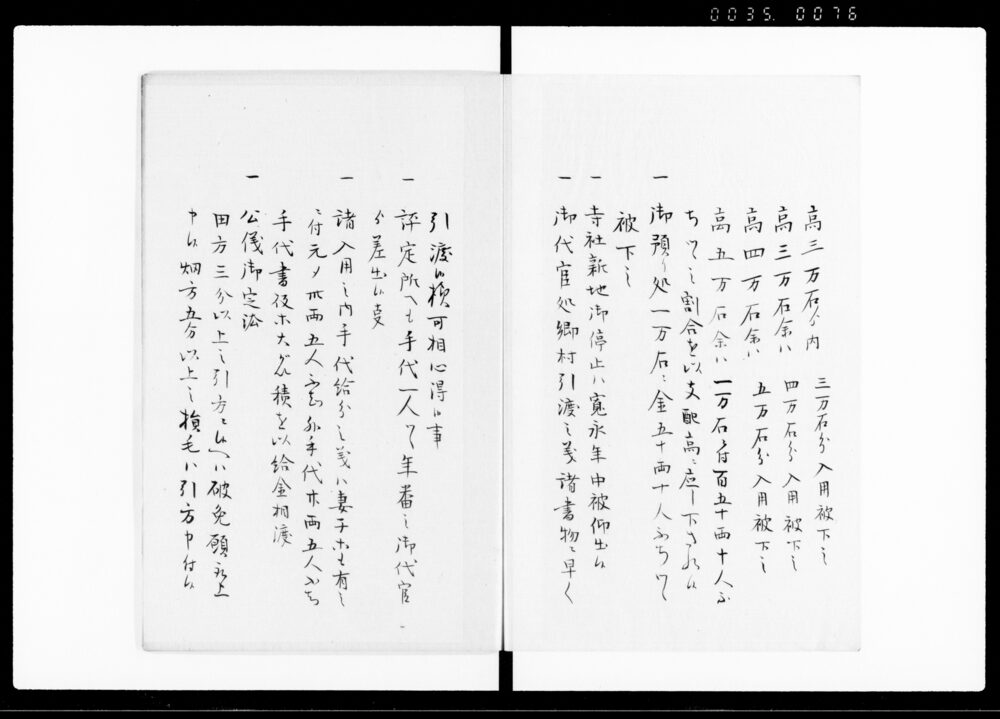 0035. 0076
高三万石ゟ内 三万石分入用被下之
高三万石余ハ 四万石分入用被下之
高四万石余ハ 五万石分入用被下之
高五万石余ハ一万石ニ付百五十両十人ふ
ちツヽ之割合を以支配高ニ応し下され候
一 御預り処一万石ニ金五十両十人ふちツヽ
被下之
一 寺社新地御停止ハ寛永年中被仰出候
一 御代官処郷村引渡之義諸書物ニ早く
引渡候様可相心得候事
一 評定所へも手代一人ツヽ年番之御代官
ゟ差出候支
一 諸入用之内手代給分之義ハ妻子ホも有之
ニ付元〆卅両五人ふち外手代廿両五人ふち
手代書役ホ大が積を以給金相渡
一 公儀御定法
田方三分以上之引方ニ候ヘハ破免願承上
申候畑方五分以上之損毛ハ引方申付候